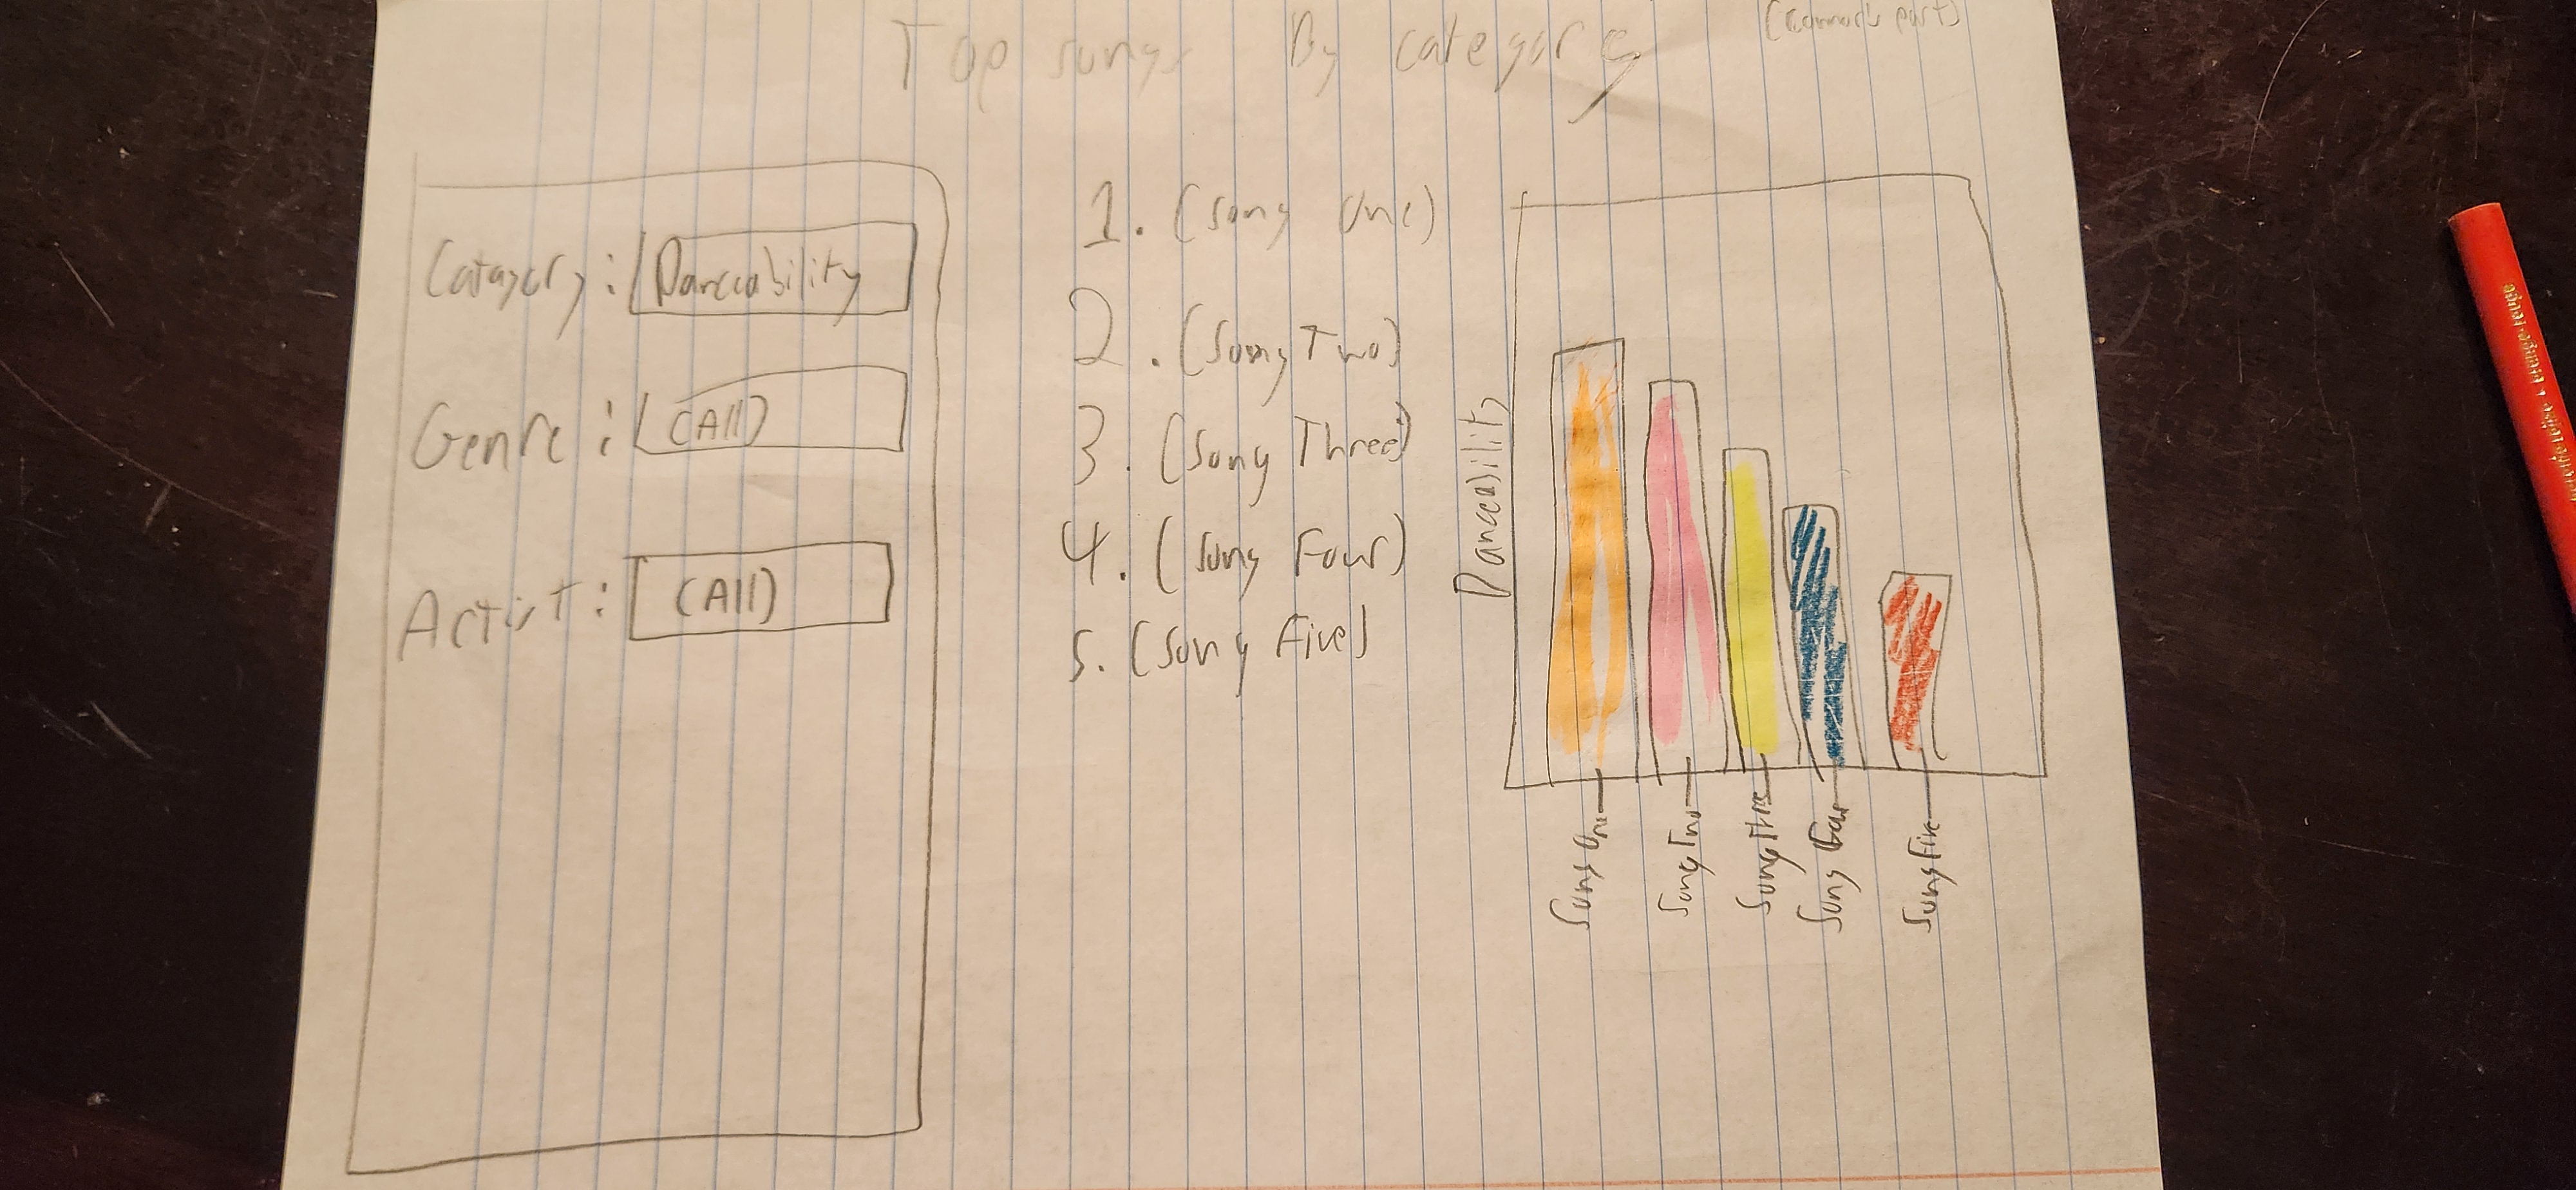 Top Songs By Category
Category: Danceability
Genre: (All)
Artist: (All)
1. (Song One)
2. (Song Two)
3. (Song Three)
4. (Song Four)
5. (Song Five)
Danceability
Song One
Song Two
Song Three
Song Four
Song Five
orange-rouge